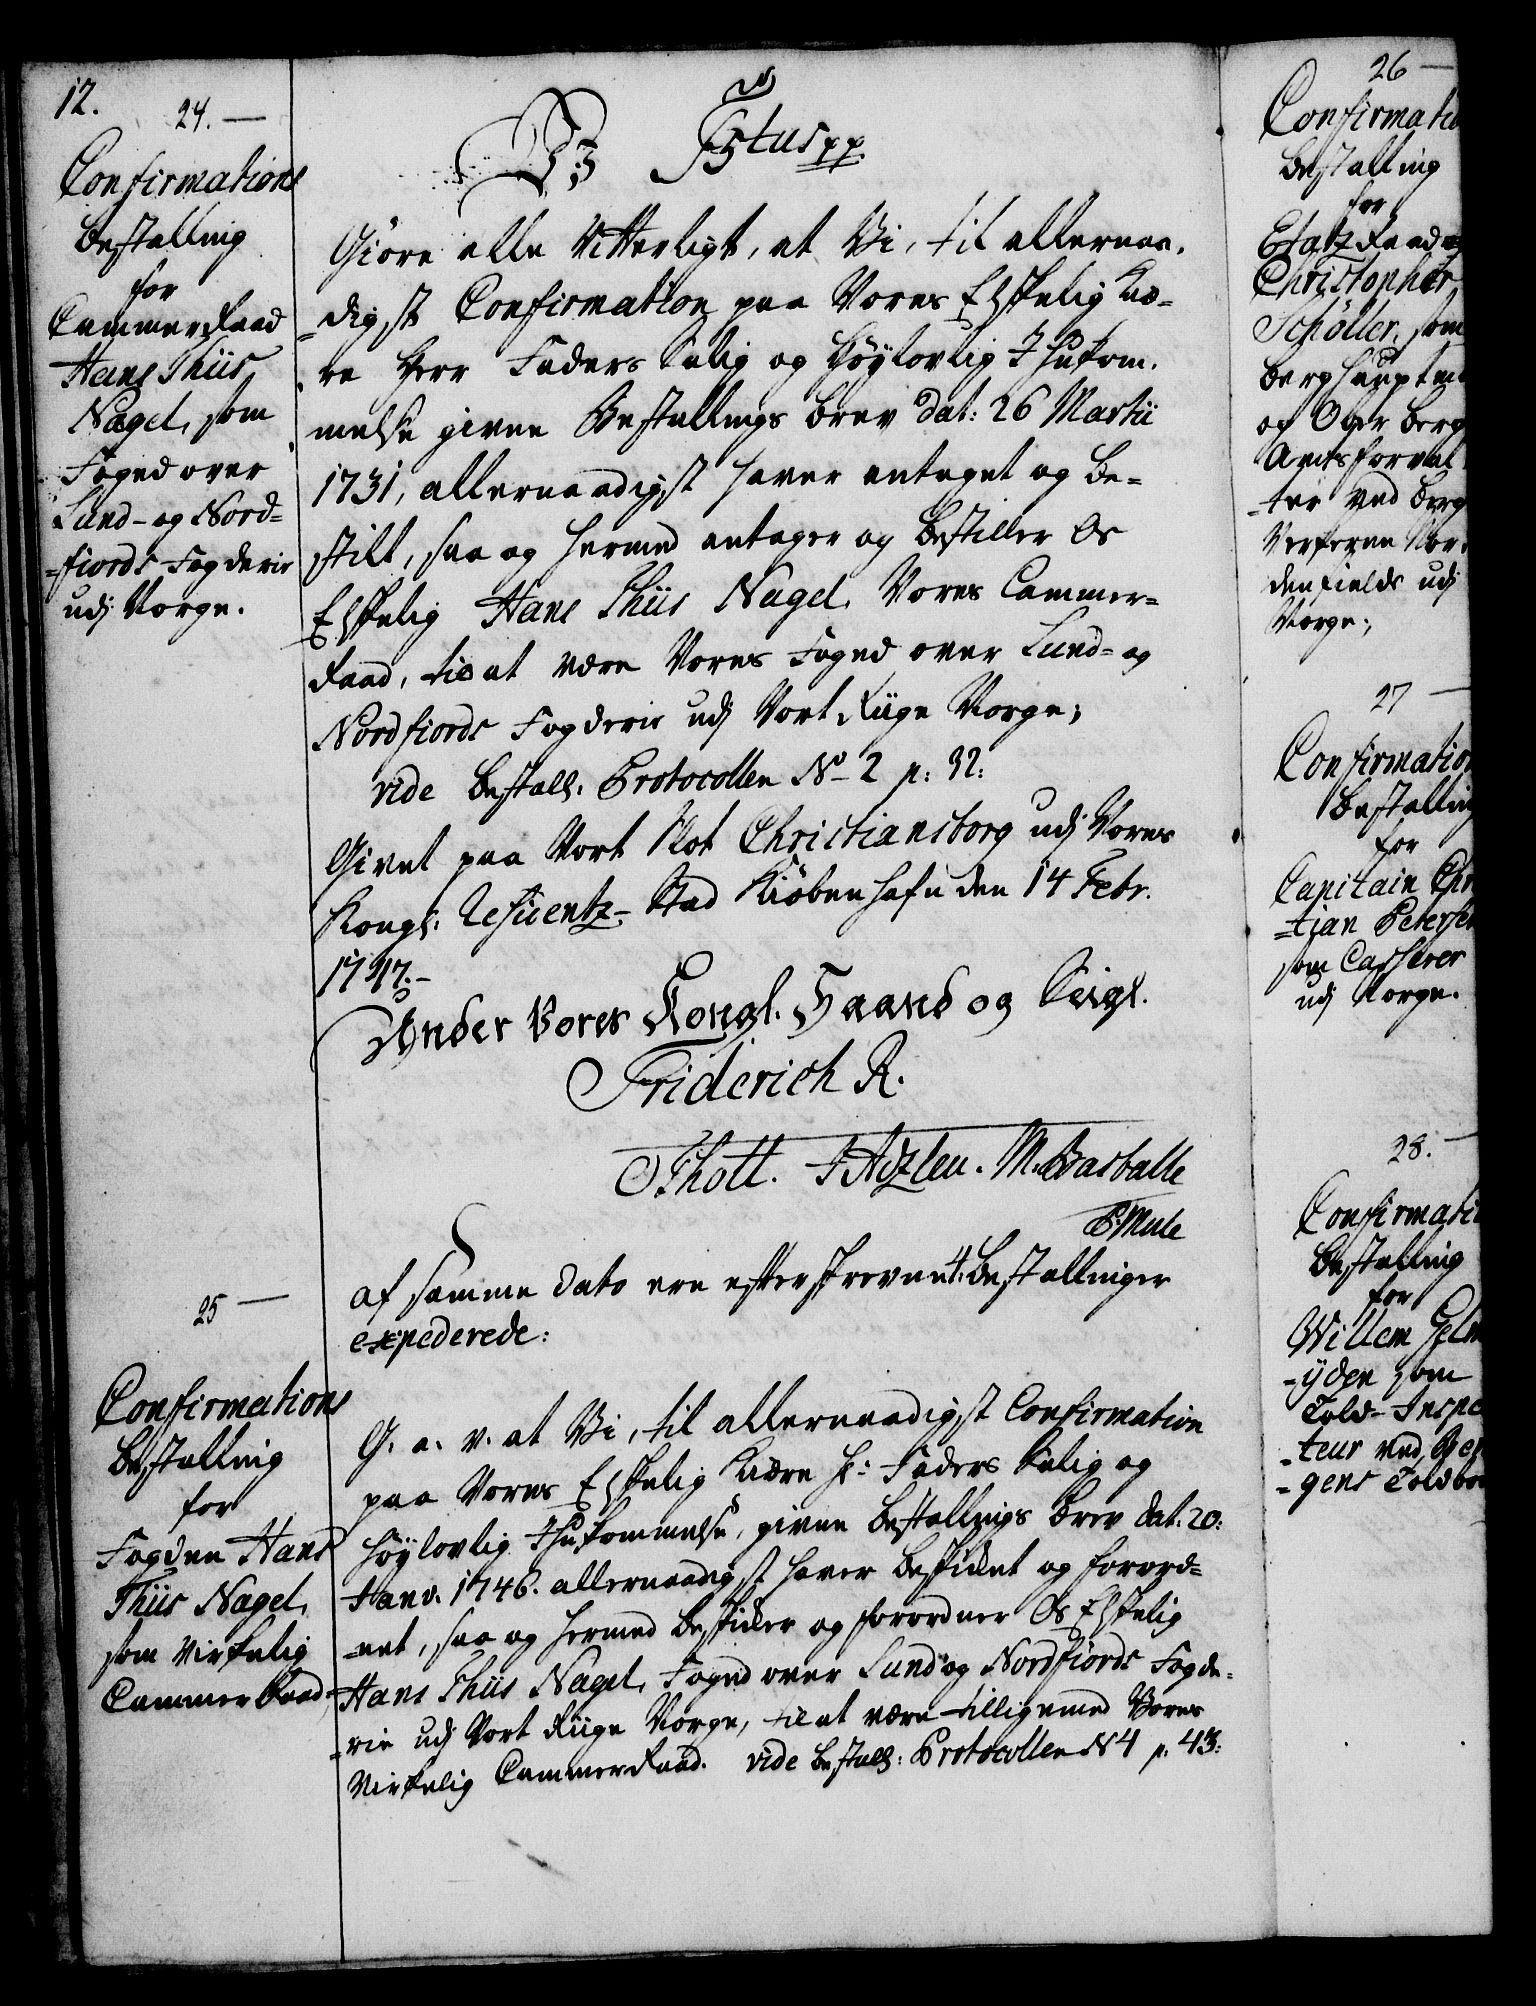 12.
24.
Confirmations
Bestalling
for
CammerRaad
Hans Thiis
Nagel, som
Foged over
Sund- og Nord-
=fiords Fogderie
udj Norge.
Ftus pp
Giöre alle Vitterligt, at Vi, til allernaa-
=digst Confirmation paa Vores Elskelig Kiæ-
re Herr Faders Salig og Høylovlig Ihukom-
melse givne Bestallings brev dat: 26 Martii
1731, allernaadigst haver antaget og be-
stilt, saa og hermed antager og bestiller Os
Elskelig Hans Thiis Nagel, Vores Cammer-
Raad, til at være Vores Foged over Sund- og
Nordfiords Fogderie udj Vort Riige Norge;
vide Bestall. Protocollen No 2 p: 32:
Givet paa Vort Slot Christiansborg udj Vores
Kongl. Residentz-Stad Kiöbenhafn den 14 Febr.
1747.-
Under Vores Kongl. Haand og Seigl.
Friderich R.
Thott. M. Barballe
P. Mule
af samme dato ere efterskrevne 4. Bestallinger
expederede:
25
Confirmations
Bestalling
for
Fogden Hans
Thiis Nagel,
som Virkelig
CammerRaad,
G. a. v. at Vi, til allernaadigst Confirmation
paa Vores Elskelig Kiære Hr: Faders Salig og
Høylovlig Ihukommelse, givne Bestallings Brev dat. 20:
Janv. 1746. allernaadigst haver beskikket og forord-
=net, saa og hermed beskikker og forordner Os Elskelig
Hans Thiis Nagel, Foged over Sund og Nordfiords Fogde-
=rie udj Vort Riige Norge, til at være tilligemed Vores
Virkelig CammerRaad. vide Bestall: Protocollen N 4 p. 43:
26
Confirmatio
Bestalling
for
EtatzRaad
Christopher
Schöller, som
Berghauptm
og Ober Berg
Amtsforval
=ter ved Berg
Verkerne Nor-
denfields udj
Norge;
27
Confirmation
Bestalling
for
Capitain Chr
=tian Petersen
som Casserer
udj Norge.
28.
Confirmati
Bestalling
for
Willem Helm
=yden som
Told-Inspe
=teur ved Ber
=gens Toldbo